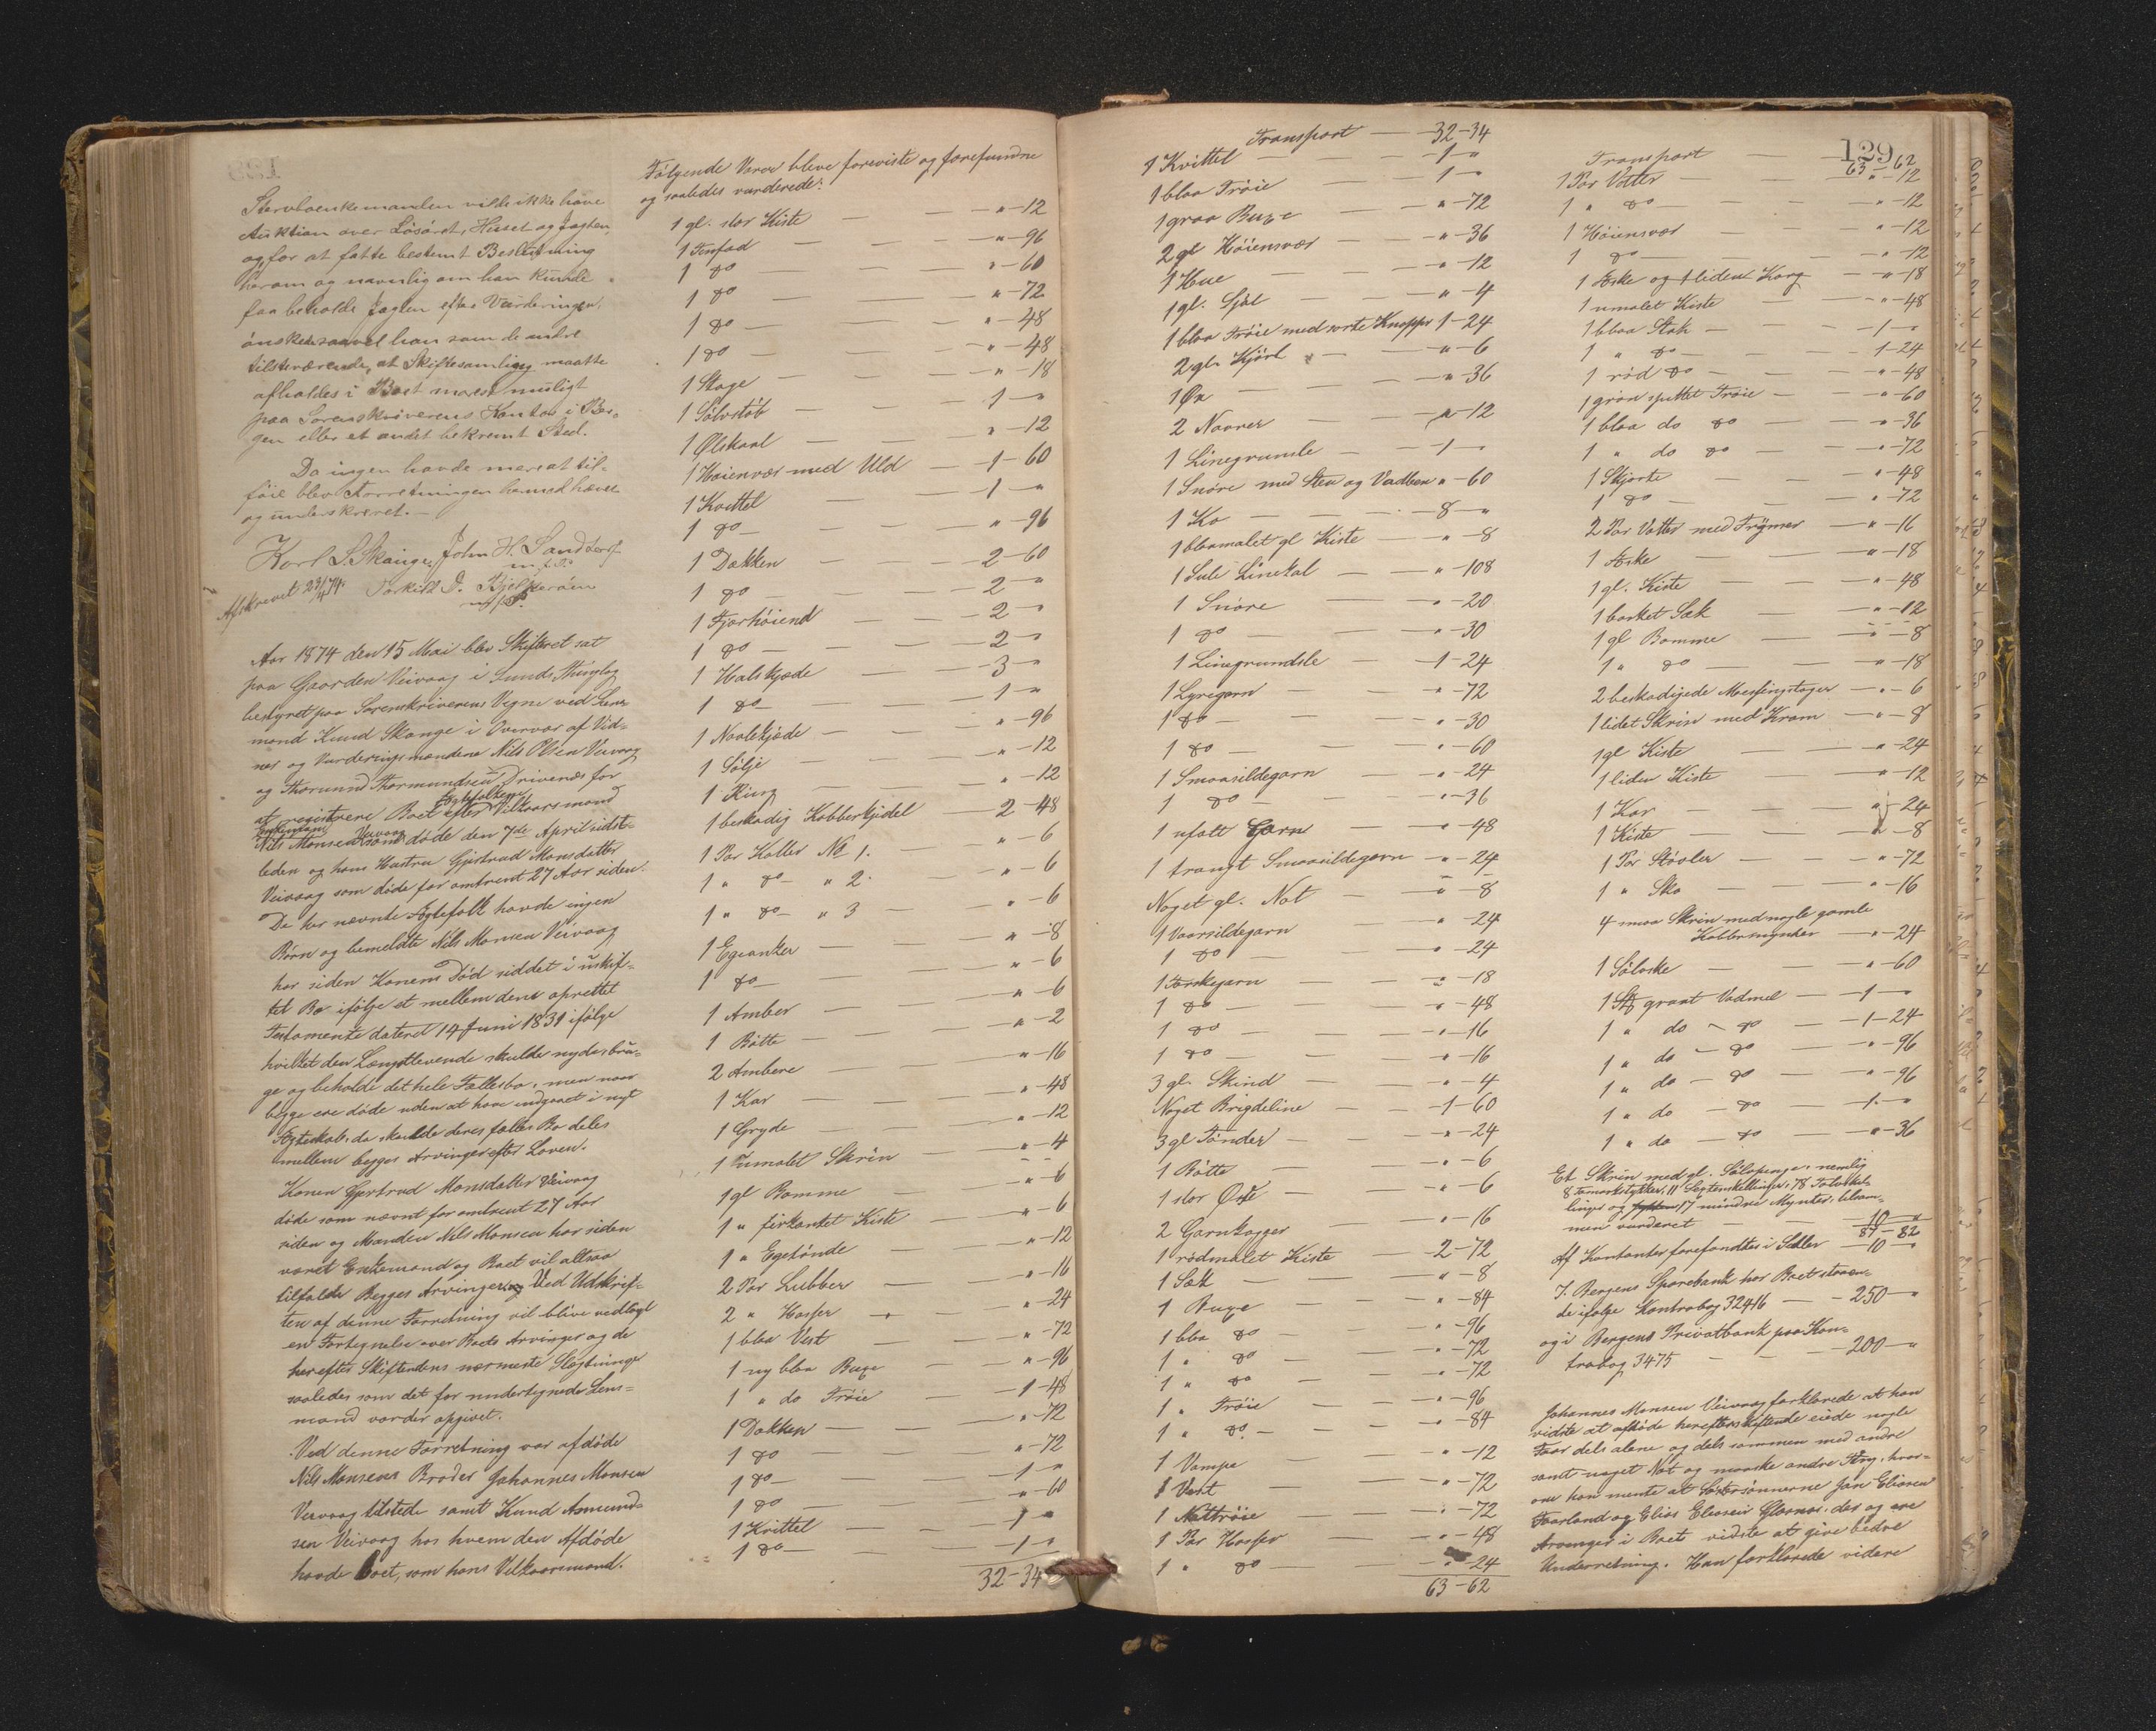 Stervboenkemanden vilde ikke have
Auktion over Lösöret, Huset og Jagten,
og for at fatte bestemt Beslutning
herom og navnlig om han kunde
faa beholde Jagten efter Vurderingen,
önskede saavel han som de andre
tilstedeværende, at Skiftesamling maatte
afholdes i Boet snarest muligt
paa Sorenskriverens Kontor i Ber-
gen eller et andet bekvemt Sted.
Da ingen havde mere at til-
föie blev Forretningen hermed hævet
og underskrevet.—
Karl S. Skauge. John H. Sandtorf
m.f.P.
Afskrevet 29/4 74. Torkild O. Kjelkerøen
m.f.P.
Aar 1874 den 15 Mai blev Skifteret sat
paa Gaarden Veivaag i Sunds Thinglag
bestyret paa Sorenskriverens Vegne ved Lens-
mand Knud Skauge i Overvær af Vid-
ner og Vurderingsmændene Nils Olsen Veivaag
og Thormund Thormundsen Drivenes for
at registrere Boet efter Ægtefolkene Vilkaarsmand
Enkemand Nils Monsen Veivaag som döde den 7de April sidst-
leden og hans Hustru Gjertrud Monsdatter
Veivaag som döde for omtrent 27 Aar siden.
De her nævnte Ægtefolk havde ingen
Börn og bemeldte Nils Monsen Veivaag
har siden Konens Död siddet i uskif-
tet Bo ifölge et mellem dem oprettet
Testamente dateret 14 Juni 1831 ifölge
hvilket den Længstlevende skulde nyde, bru-
ge og beholde det hele Fællesbo, men naar
begge ere döde uden at have indgaaet i nyt
Ægteskab, da skulde deres fælles Bo deles
mellem begges Arvinger efter Loven.
Konen Gjertrud Monsdatter Veivaag
döde som nævnt for omtrent 27 Aar
siden og Manden Nils Monsen har siden
været Enkemand og Boet vil altsaa
tilfalde Begges Arvinger og Ved Udskrif-
ten af denne Forretning vil blive vedlagt
en Fortegnelse over Boets Arvinger og de
herefter Skiftendes nærmeste Slegtninge
saaledes som det for undertegnede Lens-
mand vorder opgivet.
Ved denne Forretning var afdöde
Nils Monsens Broder Johannes Monsen
Veivaag tilstede samt Knud Amund-
sen Veivaag hos hvem den Afdöde
havde boet, som hans Velkaarsmand.
Fölgende Varer bleve foreviste og forefundne
og saaledes vurderede:
1 gl. stor Kiste — „ - 12
1 Tenfad — „ - 96
1 do — „ - 60
1 do — „ - 72
1 do — „ - 48
1 do — „ - 48
1 Stage — „ - 18
1 Sölvstöb — 1 - „
1 Ølskaal — „ - 12
1 Høienvær med Uld — 1 - 60
1 Kvittel — 1 - „
1 do — „ - 96
1 Dækken — 2 - 60
1 do — 2 - „
1 Fjærhöiend — 2 - „
1 do — 2 - „
1 Halskjæde — 3 - „
1 do — 1 - „
1 Naalekjæde — „ - 96
1 Sölje — „ - 12
1 Ring — „ - 12
1 beskadig Kobberkjedel — 2 - 48
1 Par Koller No 1. — „ - 6
1 „ do — „ 2. — „ - 6
1 „ do — „ 3 — „ - 6
1 Egeanker — „ - 8
1 do — „ - 6
1 Amber — „ - 6
1 Bötte — „ - 2
2 Ambere — „ - 16
1 Kar — „ - 48
1 Gryde — „ - 12
1 umalet Skrin — „ - 4
1 gl Bomme — „ - 6
1 „ firkantet Kiste — „ - 6
1 „ Egetönde — „ - 12
2 Par Lubber — „ - 16
2 „ Hoser — „ - 24
1 blaa Vest — „ - 72
1 ny blaa Buxe — „ - 96
1 „ do Tröie — 1 - 48
1 Dækken — „ - 72
1 do — „ - 72
1 do — 1 - „
1 do — „ - 60
1 Kvittel — 1 - „
1 do — 1 - „
32 - 34
Transport — 32 - 34
1 Kvittel — 1 - „
1 blaa Tröie — 1 - „
1 graa Buxe — „ - 72
2 gl Höiensvær — „ - 36
1 Hue — „ - 12
1 gl. Sjal — „ - 4
1 blaa Tröie med sorte Knapper 1 - 24
2 gl. Kjörl — „ - 6
1 Øx — „ - 36
2 Navrer — „ - 12
1 Linegrunsle — 1 - „
1 Snöre med Sten og Vadbeen „ - 60
1 Ko — 8 - „
1 blaamalet gl Kiste — „ - 8
1 Sule Linekal — „ - 108
1 Snöre — „ - 20
1 do — „ - 30
1 Linegrundsle — 1 - 24
1 Lyregarn — „ - 72
1 do — „ - 30
1 do — „ - 60
1 Smaasildegarn — „ - 24
1 do — „ - 36
1 ufælt Garn — „ - 48
1 trangt Smaasildegarn — „ - 24
Noget gl. Not — „ - 8
1 Vaarsildegarn — „ - 24
1 do — „ - 24
1 Torskegarn — „ - 18
1 do — „ - 48
1 do — „ - 16
1 do — „ - 16
3 gl. Skind — „ - 4
Noget Brigdeline — 1 - 60
3 gl Tönder — „ - 24
1 Bötte — „ - 6
1 stor Øse — „ - 6
2 Garnkagger — „ - 16
1 rödmalet Kiste — 2 - 72
1 Sæk — „ - 8
1 Buxe — „ - 84
1 blaa do — „ - 96
1 „ do — „ - 72
1 „ do — „ - 72
1 „ Tröie — „ - 96
1 „ do. — „ - 84
1 Vampe — „ - 12
1 Vest — „ - 72
1 Nattröie — „ - 72
1 Par Hoser — „ - 48
1 „ do — „ - 24
63 - 62
129
Transport — 63 - 62
1 Par Votter — „ - 12
1 „ do — „ - 12
1 Höiensvær — „ - 12
1 do — „ - 12
1 Æske og 1 liden Korg — „ - 18
1 umalet Kiste — „ - 48
1 blaa Stak — 1 - „
1 „ do — 1 - 24
1 röd do — „ - 48
1 grön spittet Tröie — „ - 60
1 blaa do do — „ - 36
1 „ do do — „ - 72
1 Skjorte — „ - 48
1 do — „ - 72
2 Par Votter med Frynser — „ - 16
1 Æske — „ - 18
1 gl. Kiste — „ - 48
1 barket Sæk — „ - 12
1 gl Bomme — „ - 8
1 „ do — „ - 18
2 beskadigede Messingstager — „ - 6
1 lidet Skrin med Kram — „ - 8
1 gl Kiste — „ - 24
1 liden Kiste — „ - 12
1 Kar — „ - 24
1 Kiste — „ - 8
1 Par Stövler — „ - 72
1 „ Sko — „ - 16
4 smaa Skrin med nogle gamle
Kobbermynter — „ - 24
1 Sölvske — „ - 60
1 Stk graat Vadmel — 1 - „
1 „ do — do — 1 - 24
1 „ do — do — „ - 96
1 „ do — do — „ - 96
1 „ do — do — 1 - „
1 „ do — do — „ - 36
Et Skrin med gl. Sölvpenge, nemlig
8 tomarkstykker, 11 Sextenskillinger, 78 Tolvskil-
linger og 17 mindre Mynter, tilsam-
men vurderet — 10 „
87 - 82
Af Kontanter forefandtes i Sedler — 10 - „
I Bergens Sparebank har Boet staaen-
de ifölge Kontrabog 32416 — 250 - „
og i Bergens Privatbank paa Kon-
trabog 3475 — 200 - „
Johannes Monsen Veivaag forklarede at han
vidste at afdöde herefterskiftende eiede nogle
Faar dels alene og dels sammen med andre
samt noget Not og maaske andre Ting, hvor-
om han mente at Söstersönnerne Jan Eliasen
Faarland og Elias Eliasen Glesnæs, der og ere
Arvinger i Boet vidste at give bedre
Underretning. Han forklarede videre